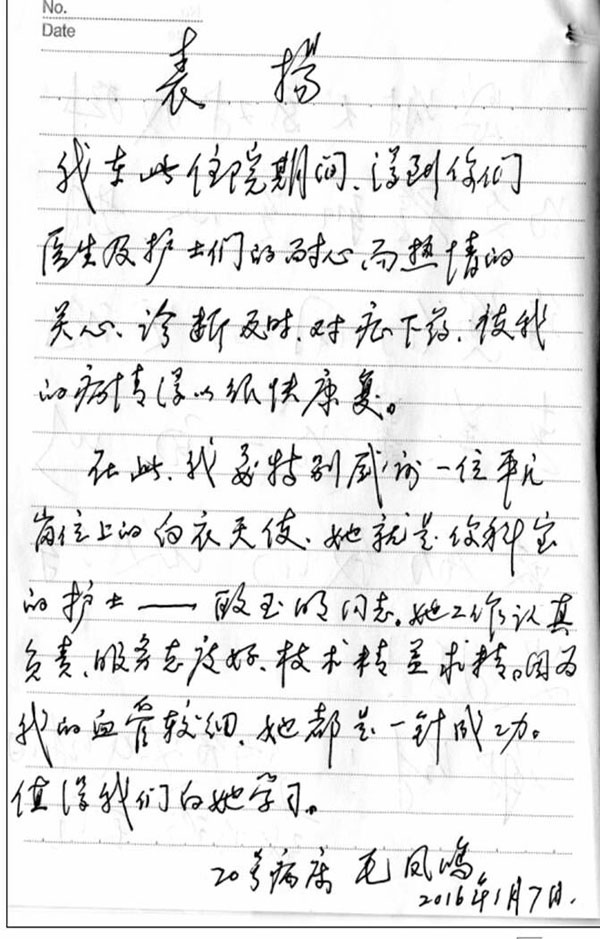 No.
Date
表扬
我在此住院期间、得到你们
医生及护士们的耐心而热情的
关心、诊断及时、对症下药、使我
的病情得以很快康复。
在此、我要特别感谢一位平凡
岗位上的白衣天使、她就是你科室
的护士——殷玉明同志。她工作认真
负责、服务态度好、技术精益求精。因为
我的血管较细、她都是一针成功。
值得我们向她学习。
20号病床 毛凤鸣
2016年1月7日.